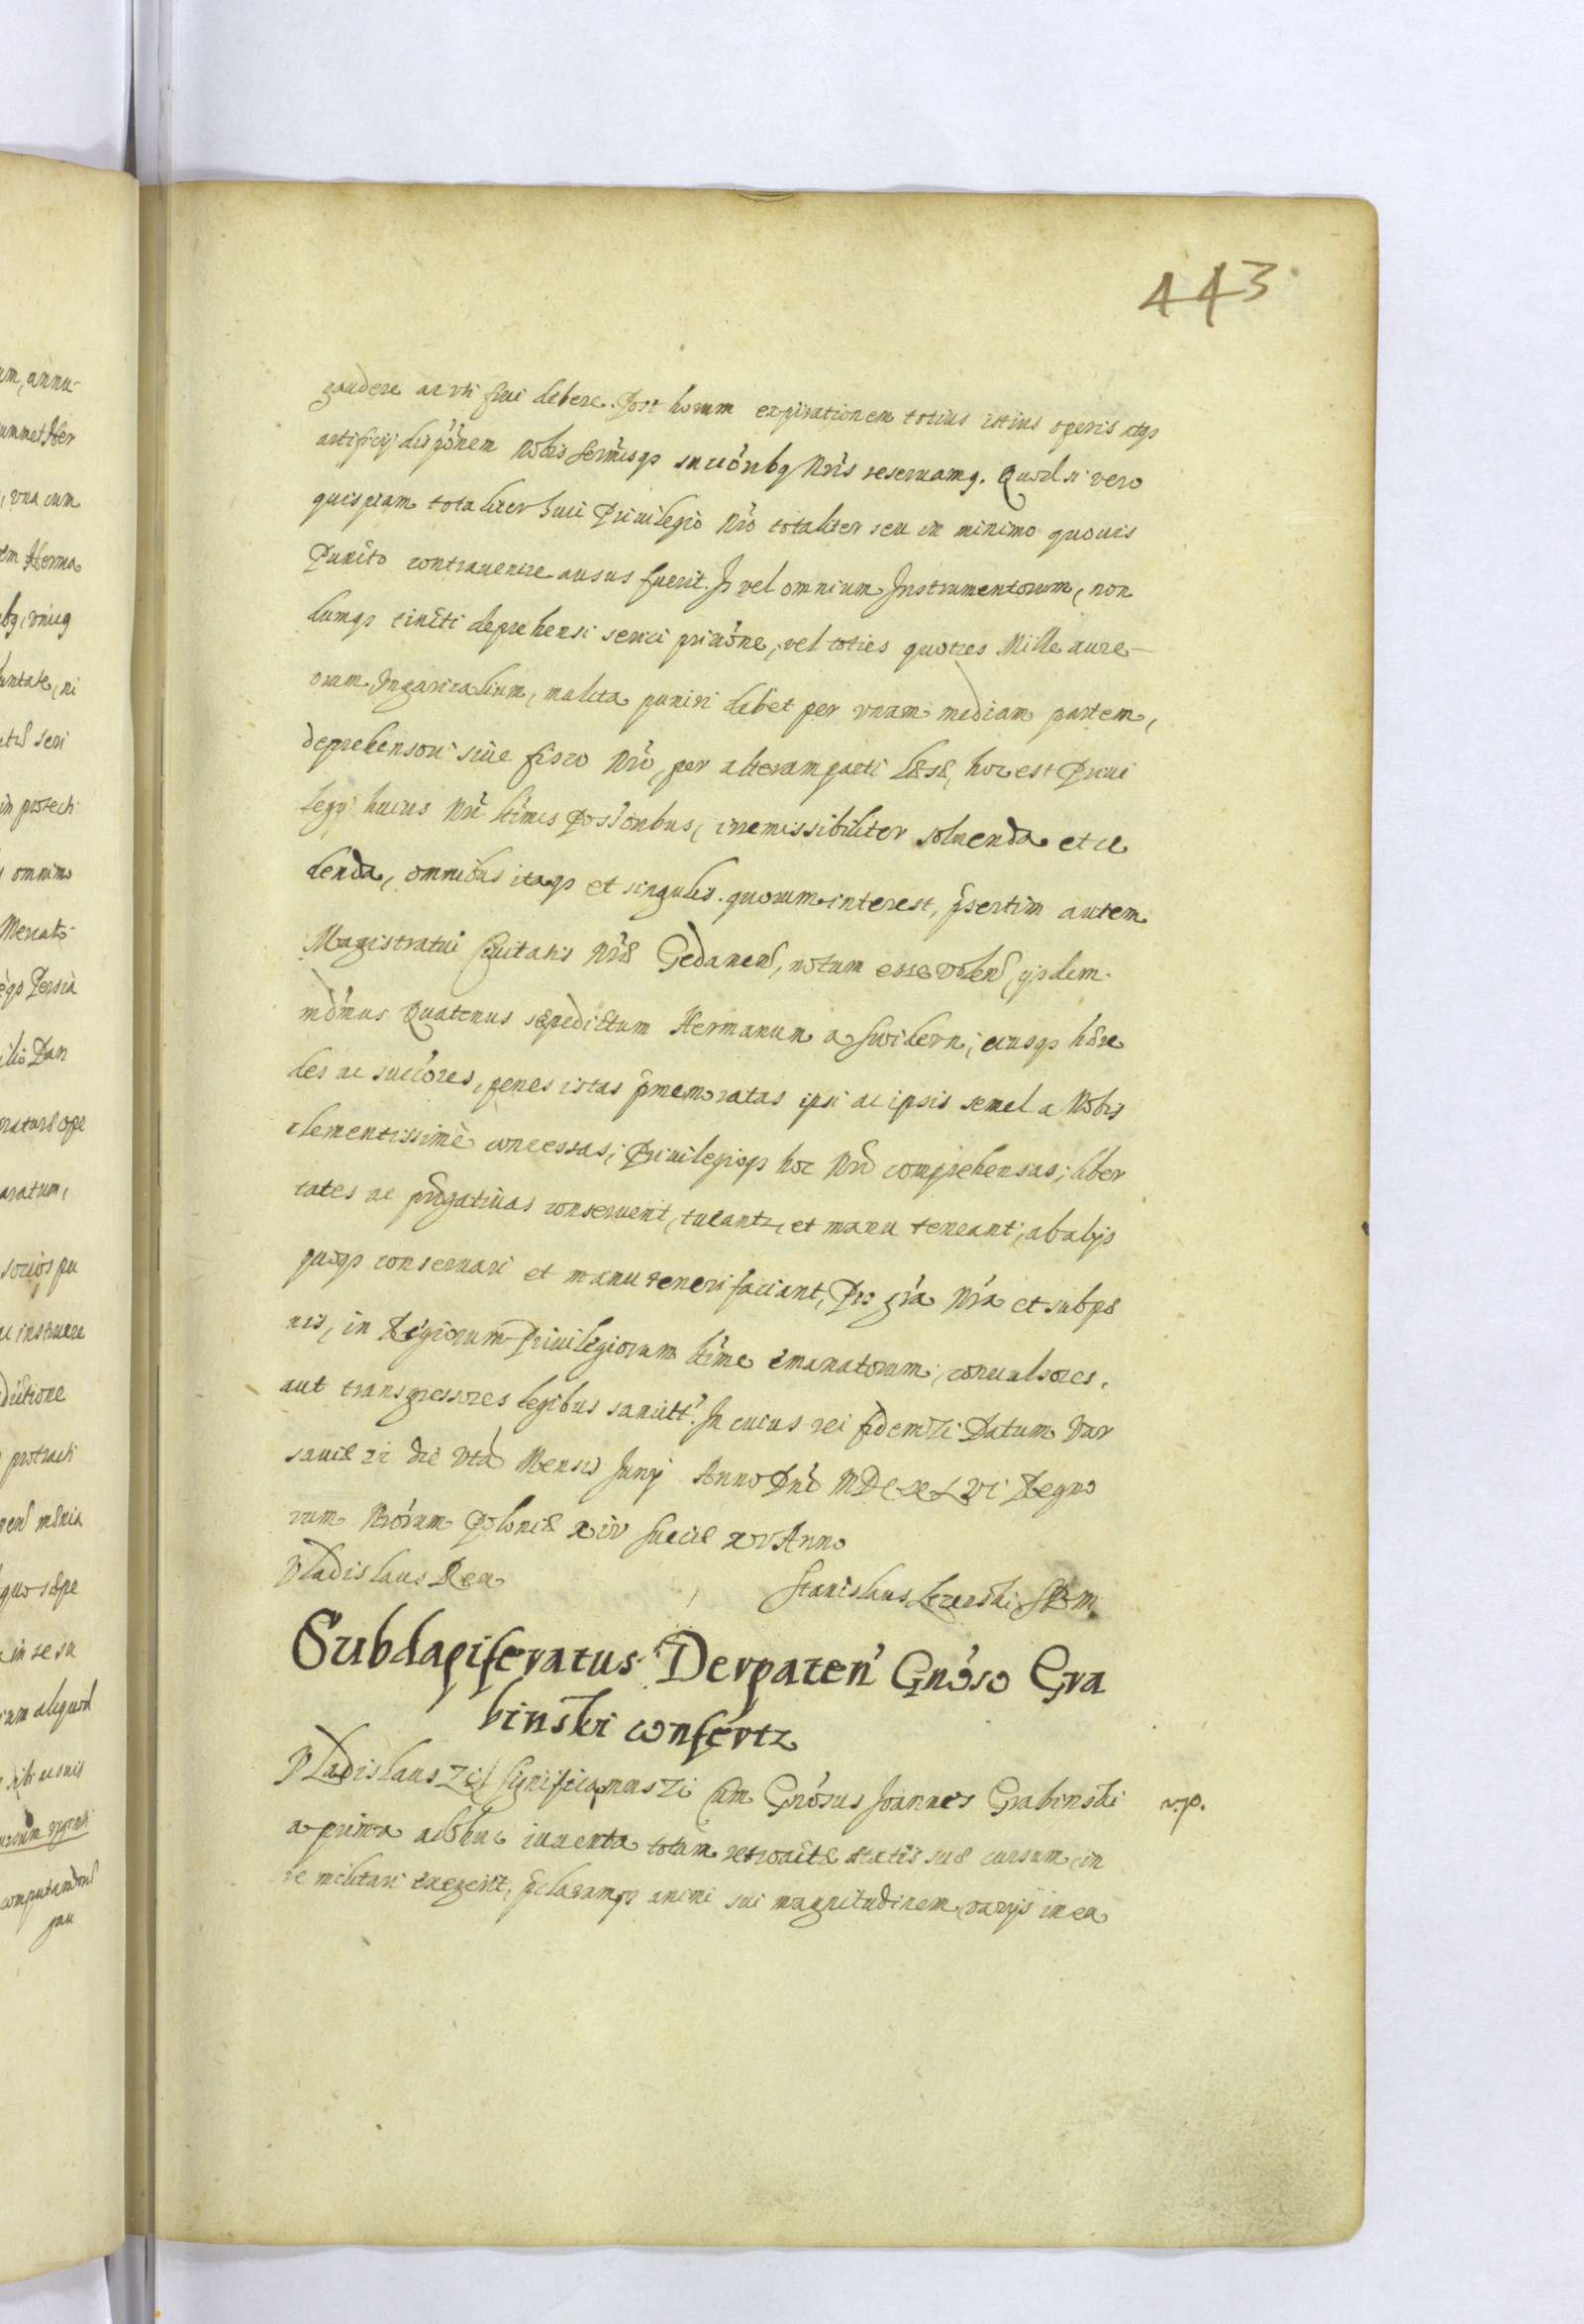 443
gaudere ac vti frui debere. Post horum expirationem totius istius operis atqꝫ
artificij dispo'nem Nobis Sermisqꝫ succo'ribq Nris reseruamq. Quod si vero
quispiam totaliter huic Priuilegio Nro totaliter seu in minimo quouis
Puncto contrauenire ausus fuerit. Is vel omnium Instrumentorum, non
dumqꝫ tincti deprehensi serici priua'one, vel toties quoties Mille aure-
orum Vngaricalium, mulcta puniri debet per vnam mediam partem,
deprehensori siue fisco Nro, per alteram parti læsæ, hoc est Priui
legij huius Nri ltimis Possoribus, irremissibiliter soluenda et ce
denda, omnibus itaqꝫ et singulis. quorum interest, psertim autem
Magistratui Ciuitatis Nræ Gedanens, notum esse volens, ijsdem
mdamus Quatenus sæpedictum Hermanum a Swidern, eiusqꝫ hære
des ac succo'res, penes istas pmemoratas ipsi ac ipsis semel a Nobis
clementissimè concessas, Priuilegioqꝫ hoc Nro comprehensas, liber
tates ac prærogatiuas conseruent, tueantz et manu teneant, ab alijs
quoqꝫ conseruari et manuteneri faciant, Pro gra Nra et sub pæ
nis, in Regiorum Priuilegiorum ltime emanatorum, conuulsores.
aut transgressores legibus sancitt. In cuius rei fidem zc Datum Var
sauiæ zi die Vta Mensis Junij Anno Dni MDCXLVI Regno
rum Nrorum Poloniæ xiv Sueciæ xv Anno
Vladislaus Rex
Stanislaus Lezenski SRM.
Subdapiferatus Derpaten' Gno'so Gra
binski confertz
Vladislaus zc Significamus zc Cum Gno'sus Joannes Grabinski
v.p.
a prima adhuc iuuenta totum retroactæ ætatis suæ cursum, in
re militari exegerit, pclaramqꝫ animi sui magnitudinem, varijs in ea